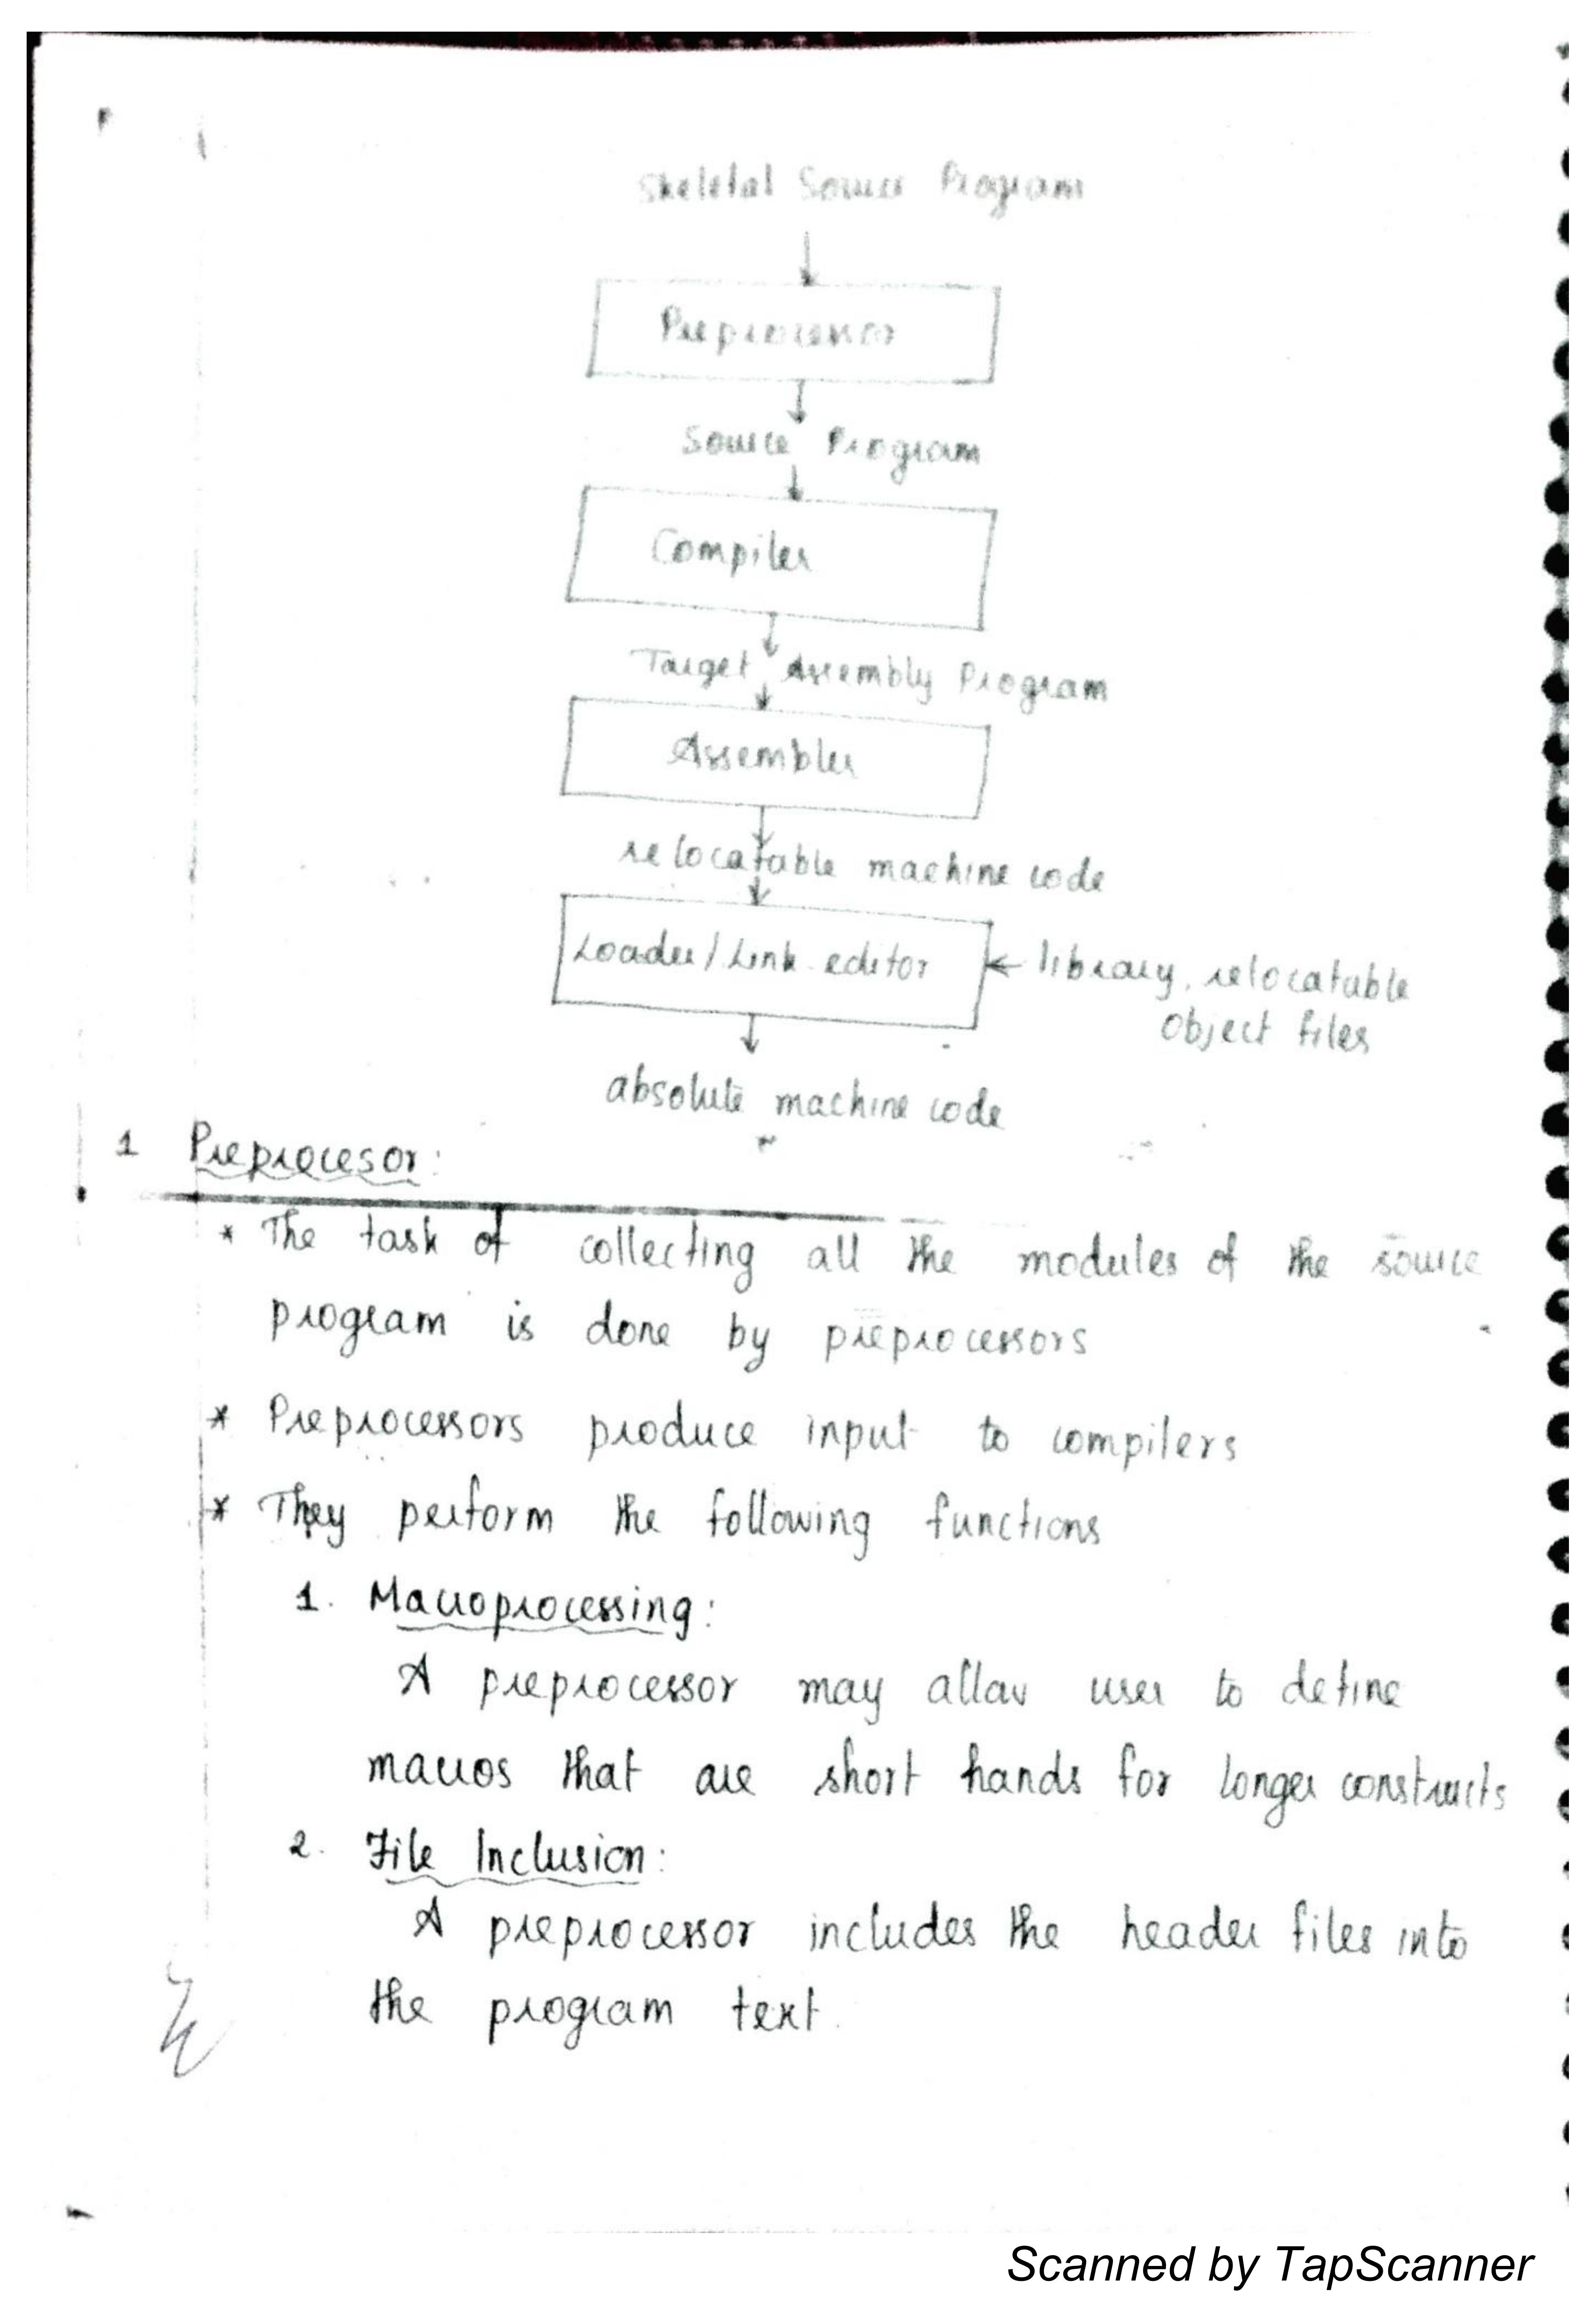 Skeletal Source Program
Preprocessor
Source Program
Compiler
Target Assembly Program
Assembler
relocatable machine code
Loader/Link editor ← library, relocatable
object files
absolute machine code
1 Preprocesor:
* The task of collecting all the modules of the source
program is done by preprocessors
* Preprocessors produce input to compilers
* They perform the following functions
1. Macroprocessing:
A preprocessor may allow user to define
macros that are short hands for longer constructs
2. File Inclusion:
A preprocessor includes the header files into
the program text.
Scanned by TapScanner